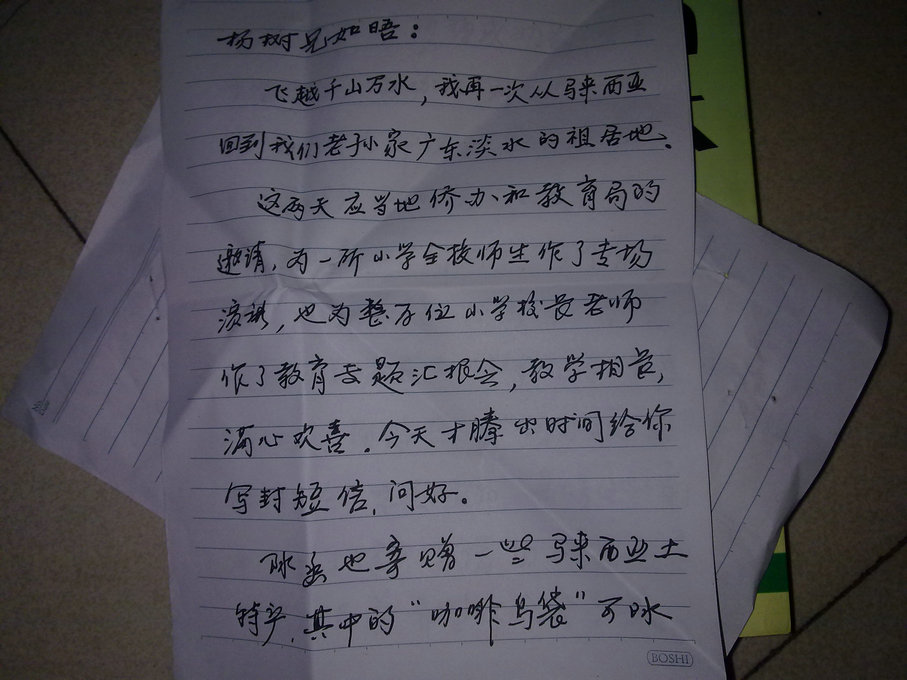 杨树兄如晤：
飞越千山万水，我再一次从马来西亚
回到我们老孙家广东淡水的祖居地、
这两天应当地侨办和教育局的
邀请，为一所小学全校师生作了专场
演讲，也为整百位小学校长老师
作了教育专题汇报会，教学相长，
满心欢喜．今天才腾出时间给你
写封短信，问好。
也寄赠一些马来西亚土
特产，其中的“咖啡乌袋”可
BOSHI